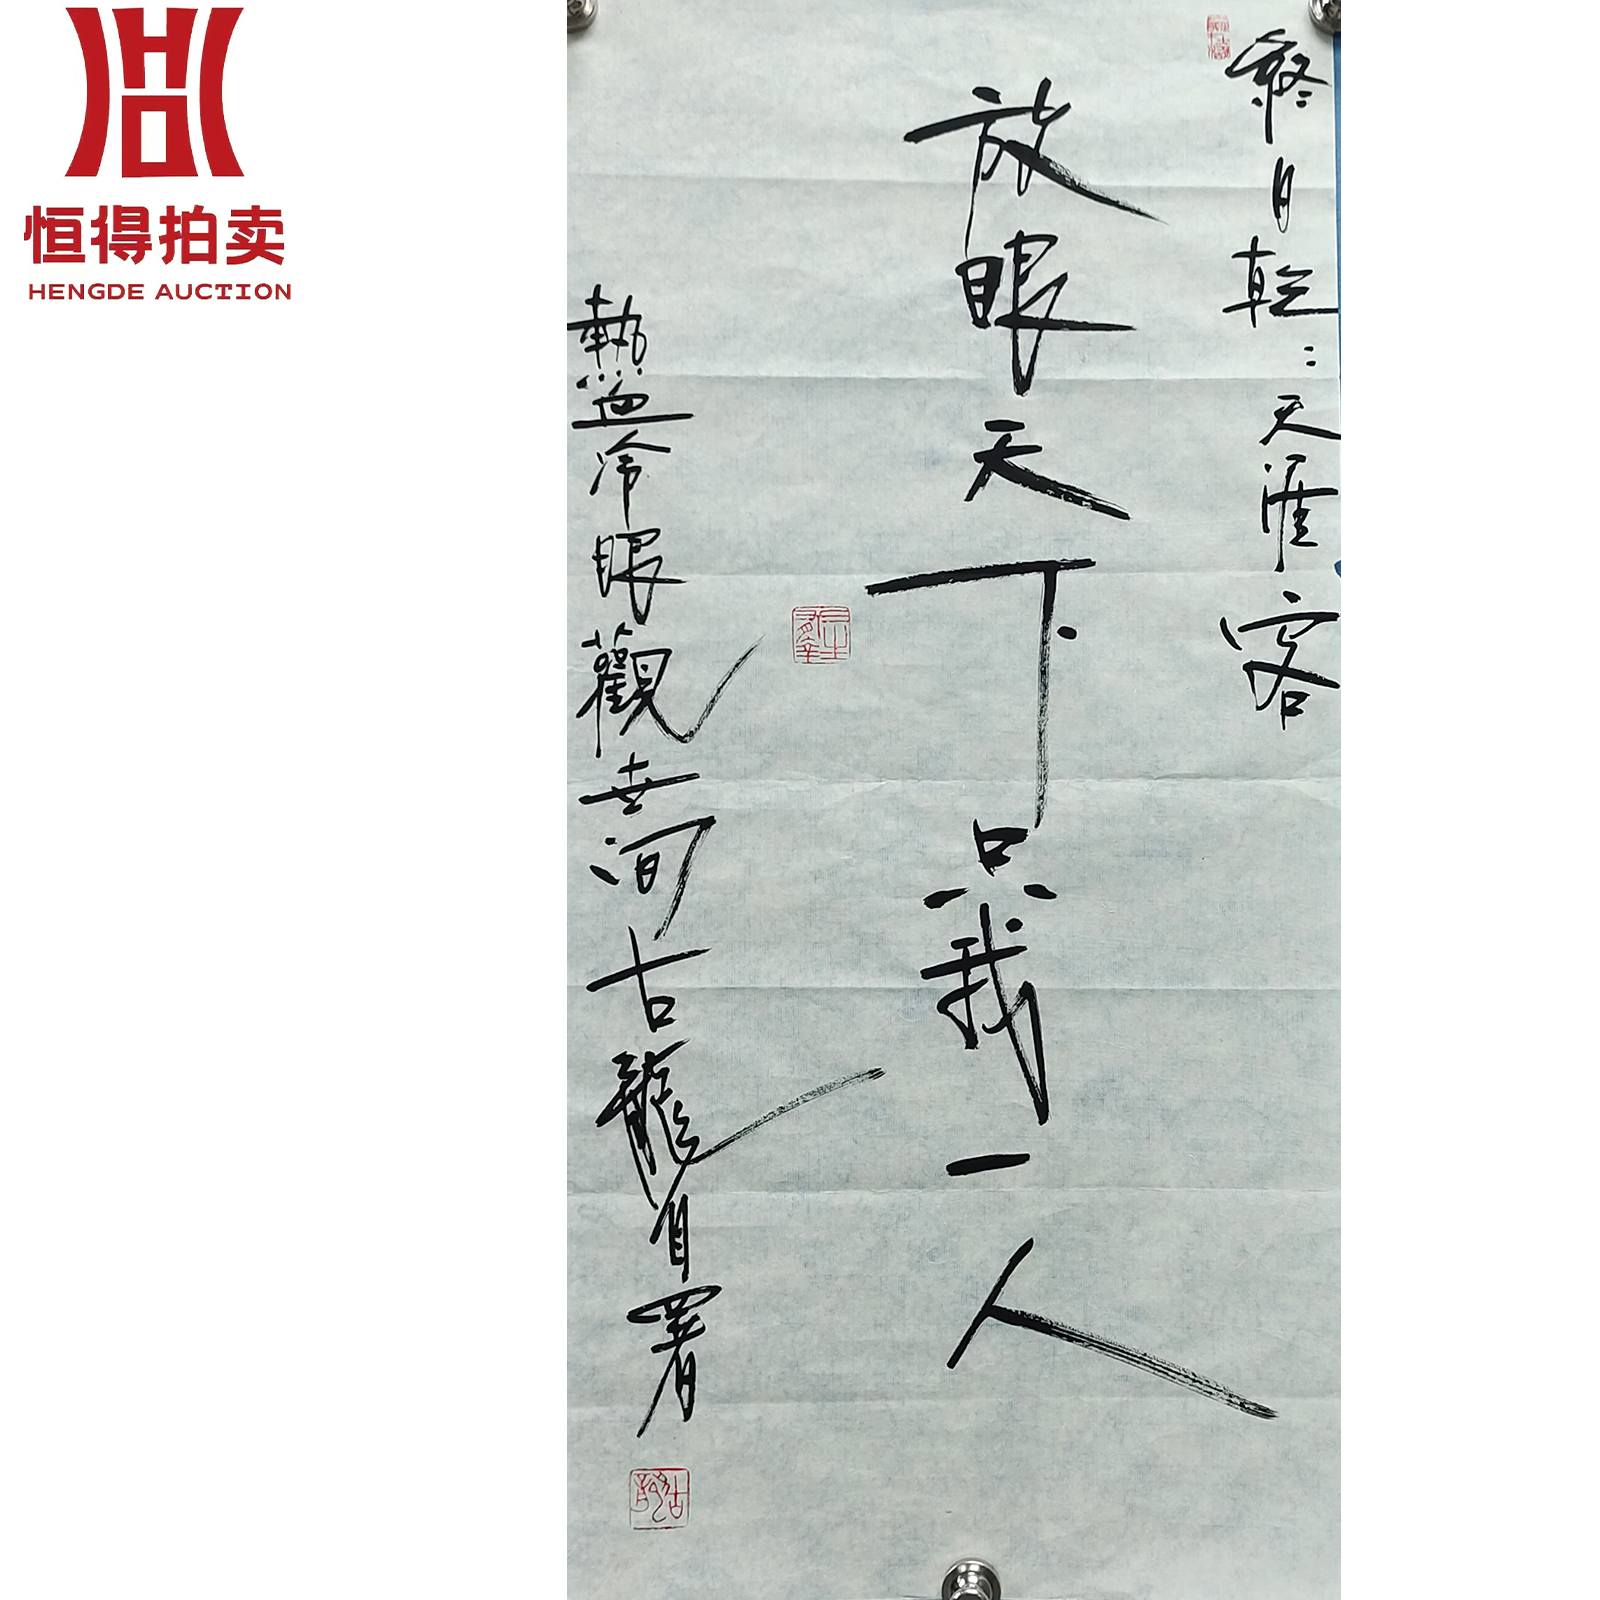 恒得拍卖
HENGDE AUCTION
終日乾:天涯客
放眼天下只我一人
熱血冷眼觀世间古龍自署